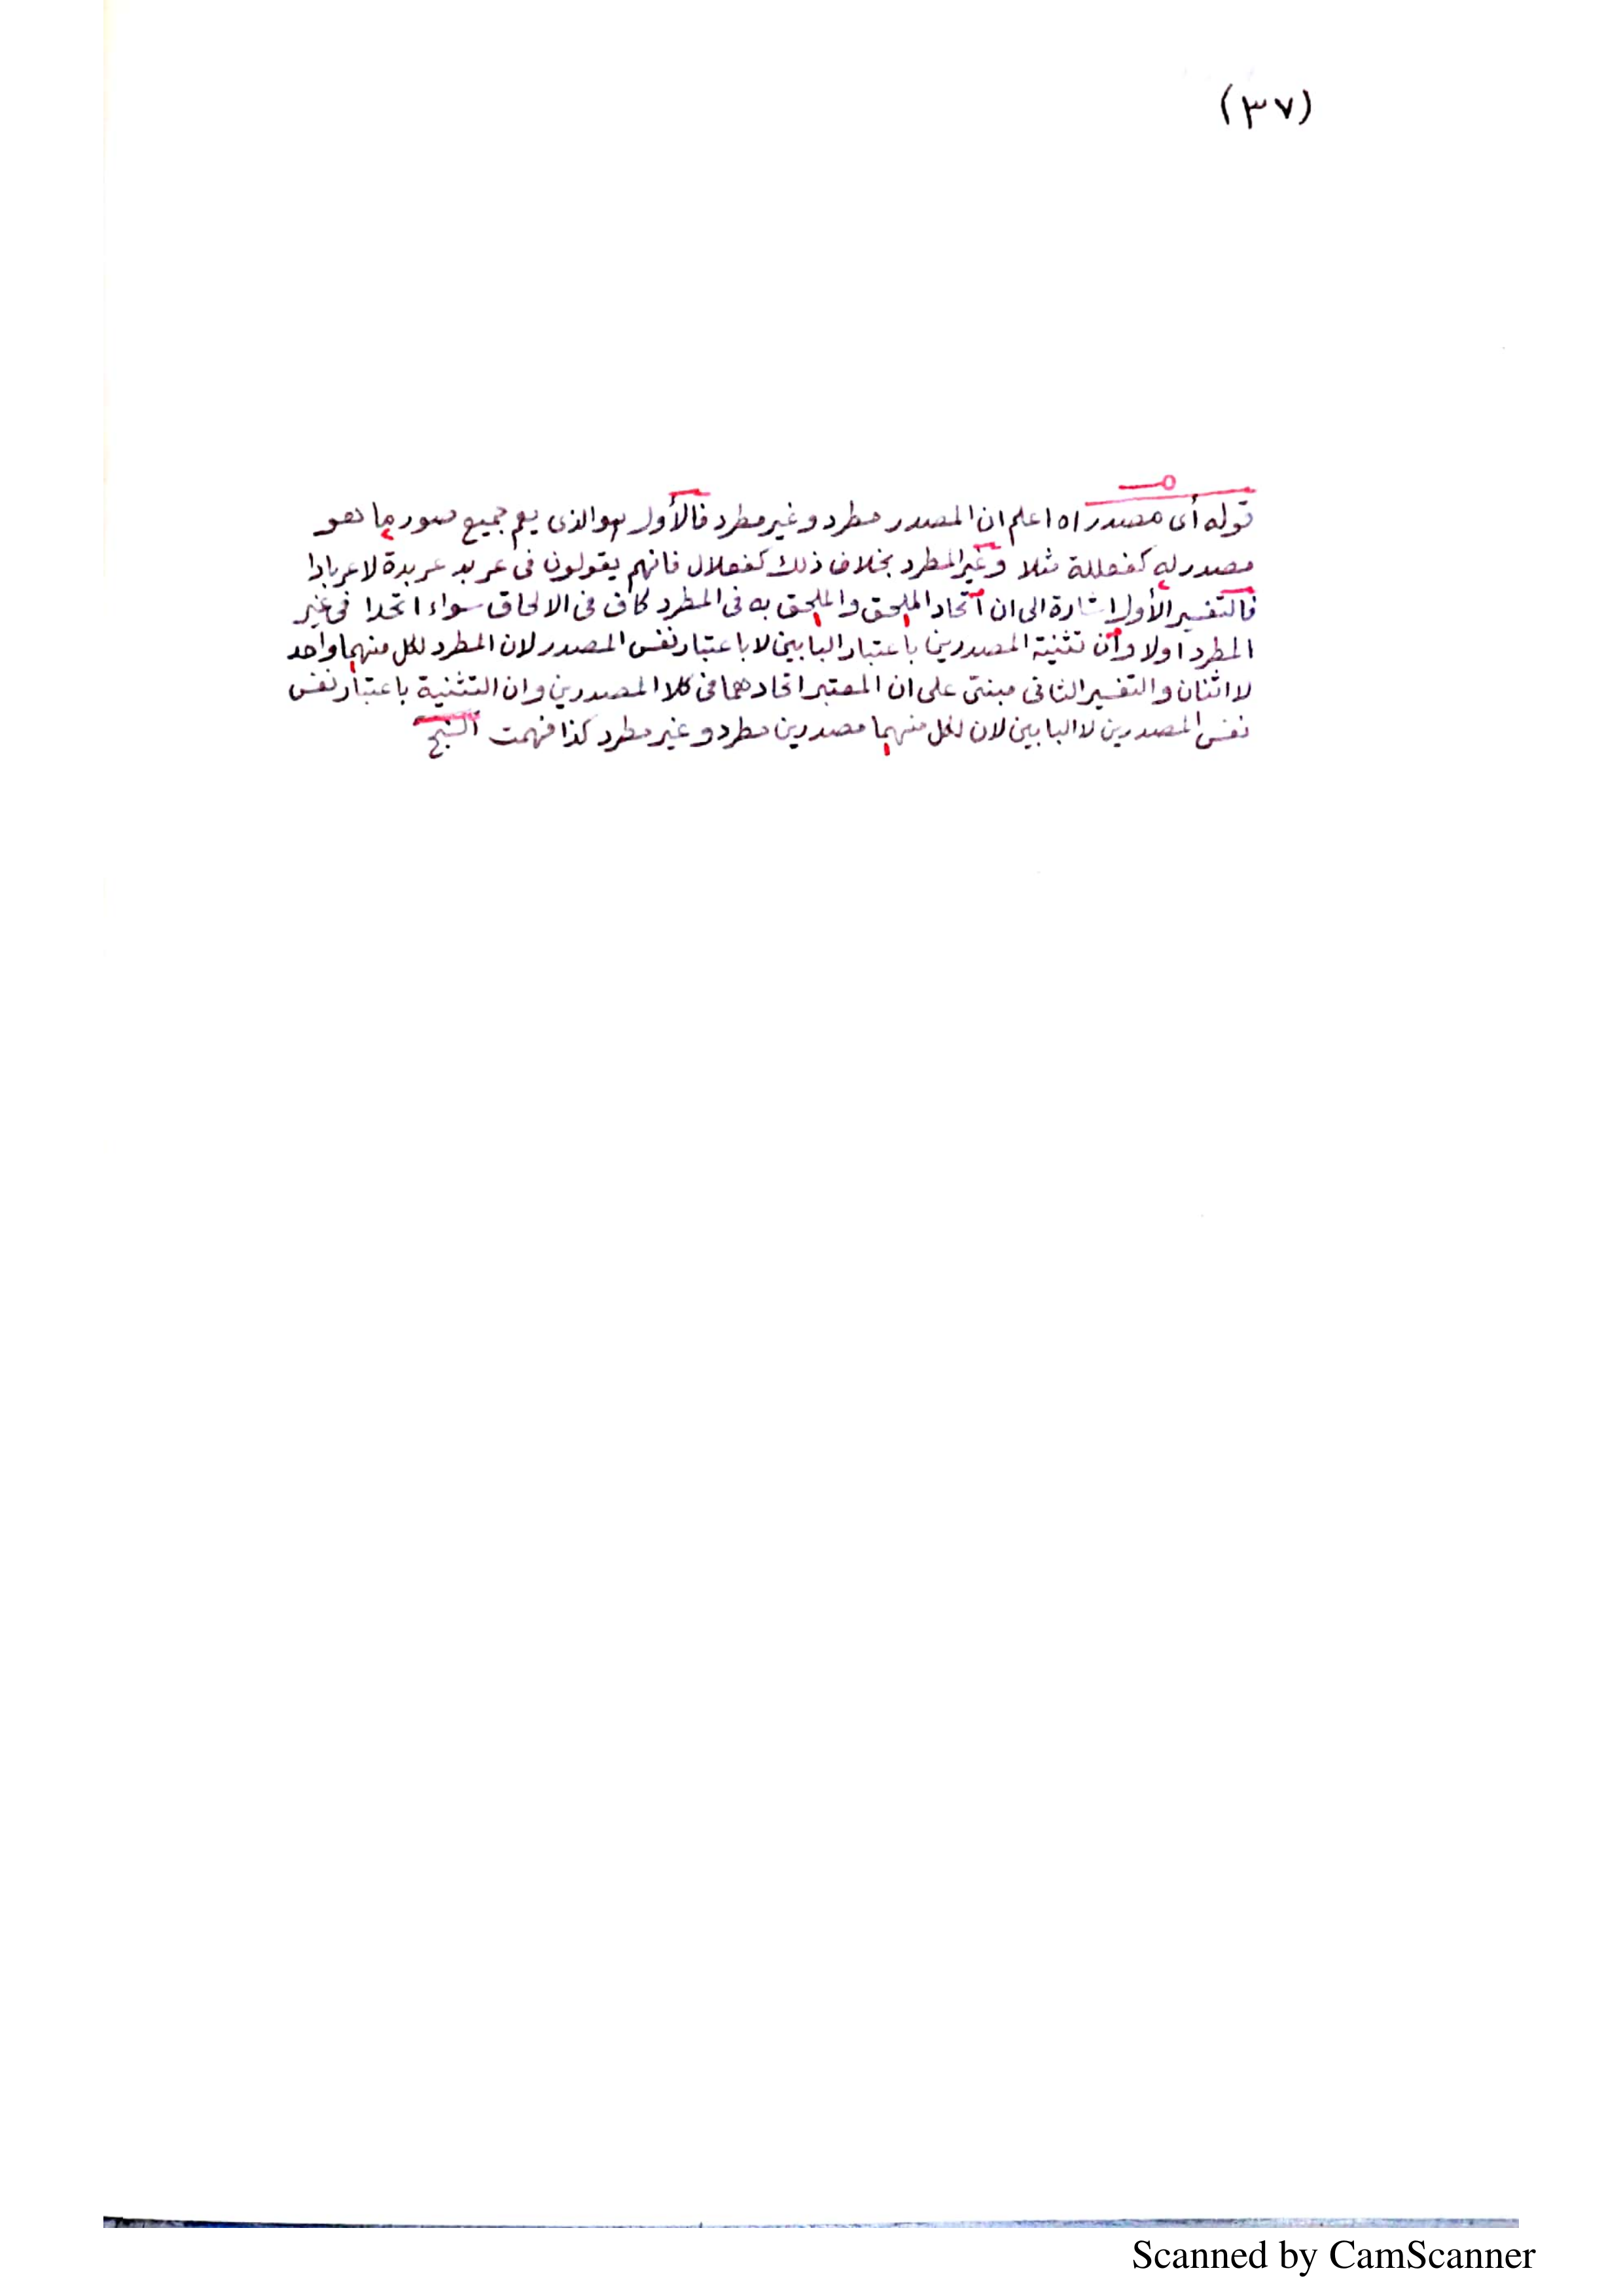 (٣٧)
قوله أى مصدراه اعلم ان المصدر مطرد وغير مطرد فالأول هو الذى يعم جميع صور ما هو
مصدر له كفعللة مثلا وغير المطرد بخلاف ذلك كفعلال فانهم يقولون فى عربد عربدة لا عربادا
فالتفسير الأول اشارة الى ان اتحاد الملحق والملحق به فى المطرد كاف فى الالحاق سواء اتحدا فى غير
المطرد اولا وان تثنية المصدرين باعتبار البابين لا باعتبار نفس المصدر لان المطرد لكل منهما واحد
لا اثنان والتفسير الثانى مبنى على ان المعتبر اتحادهما فى كلا المصدرين وان التثنية باعتبار نفس
نفس المصدرين لا البابين لان لكل منهما مصدرين مطرد وغير مطرد كذا فهمت
Scanned by CamScanner